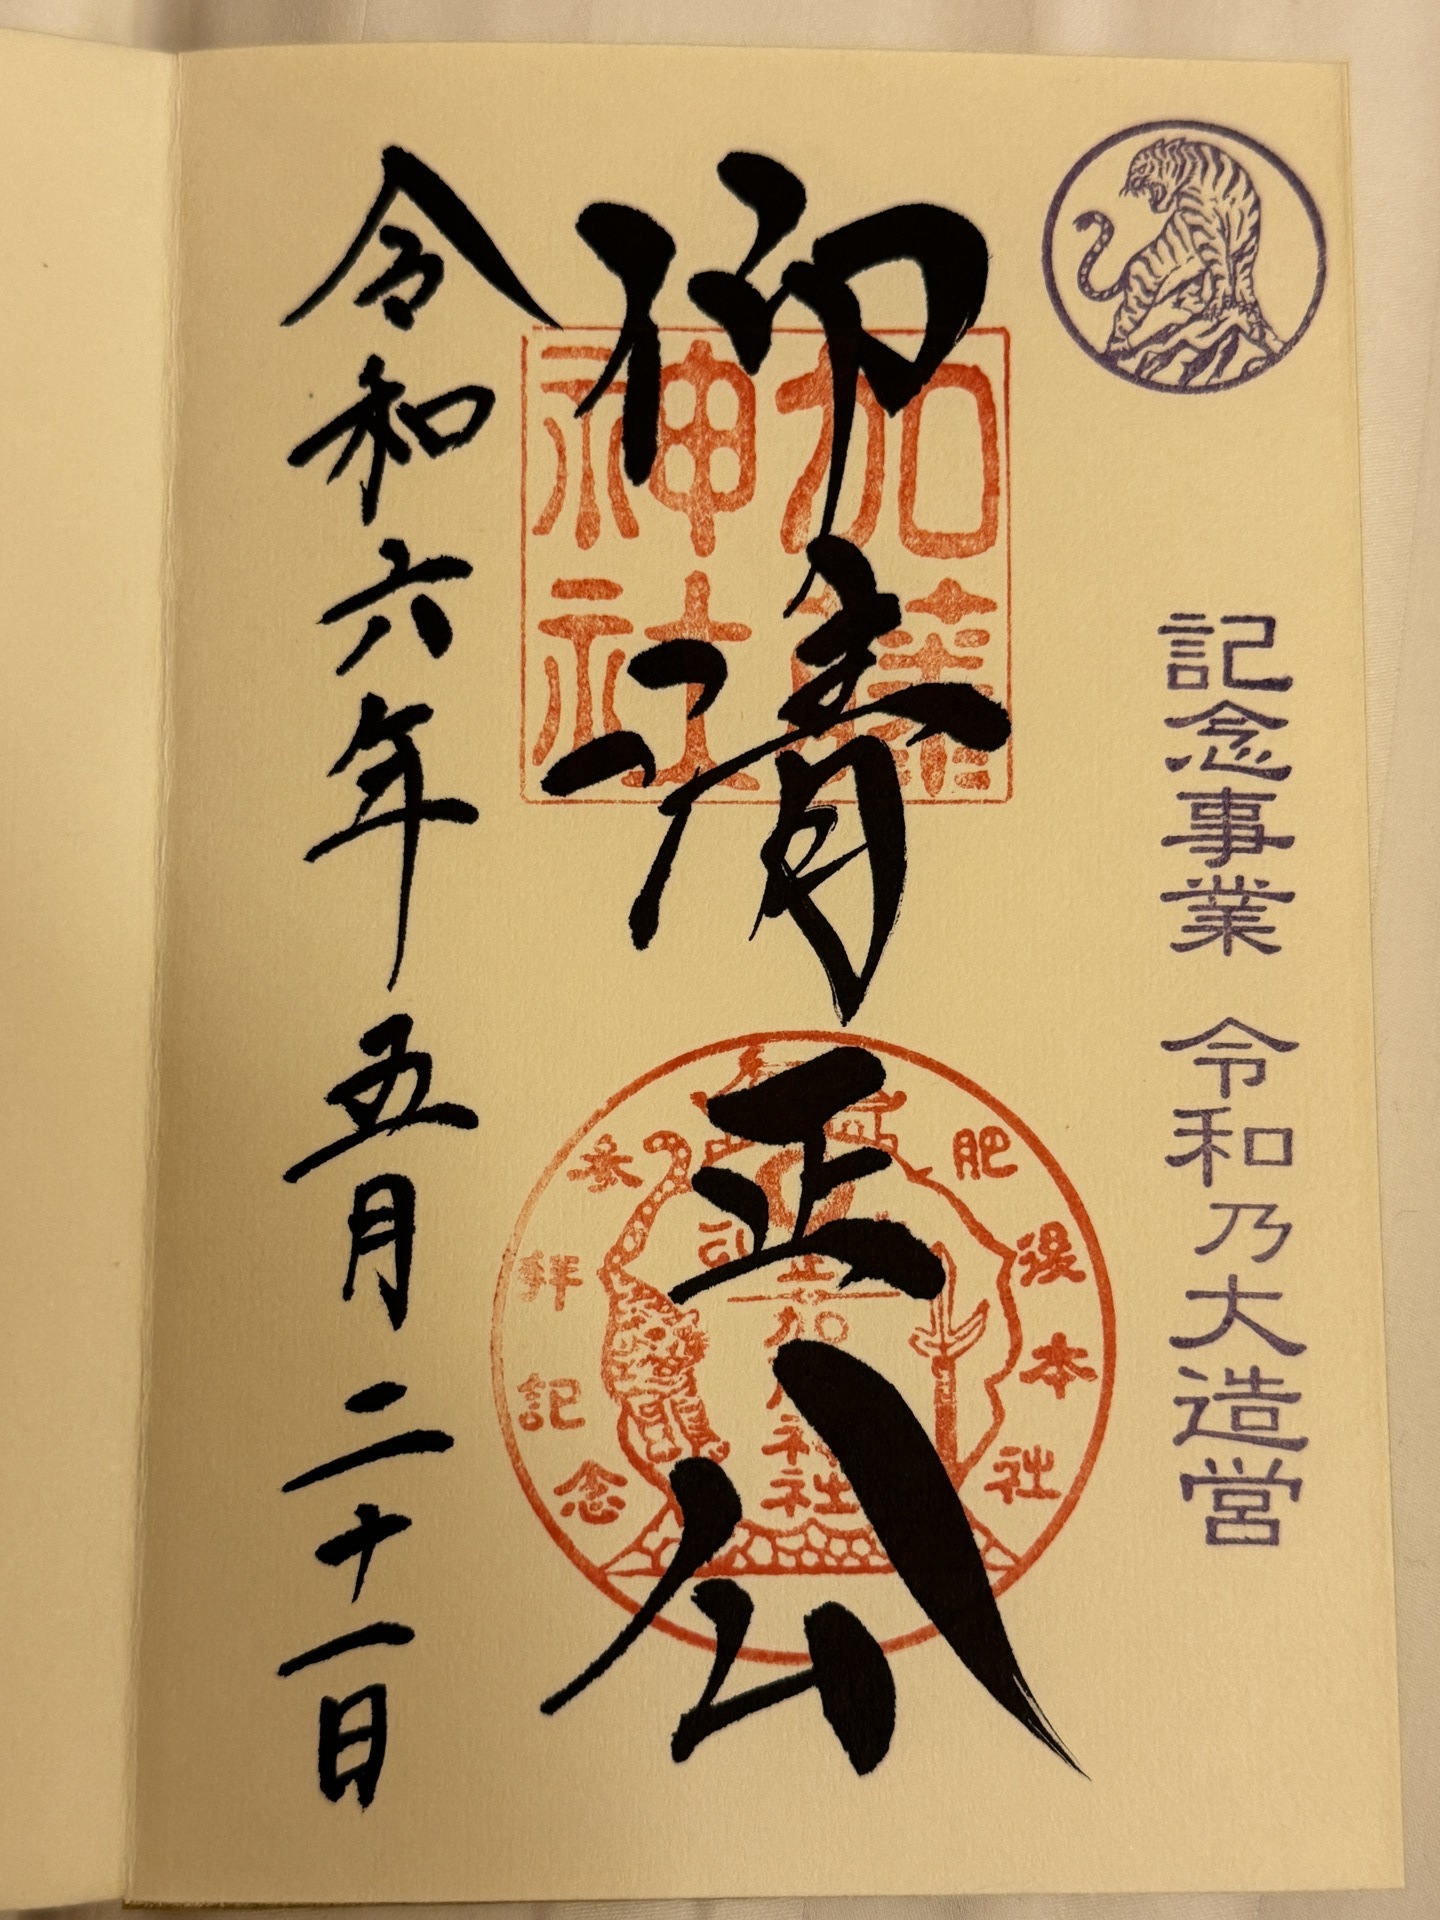 記念事業 令和乃大造営
仰清正公
加藤神社
肥後本社
参拜記念
令和六年五月二十一日